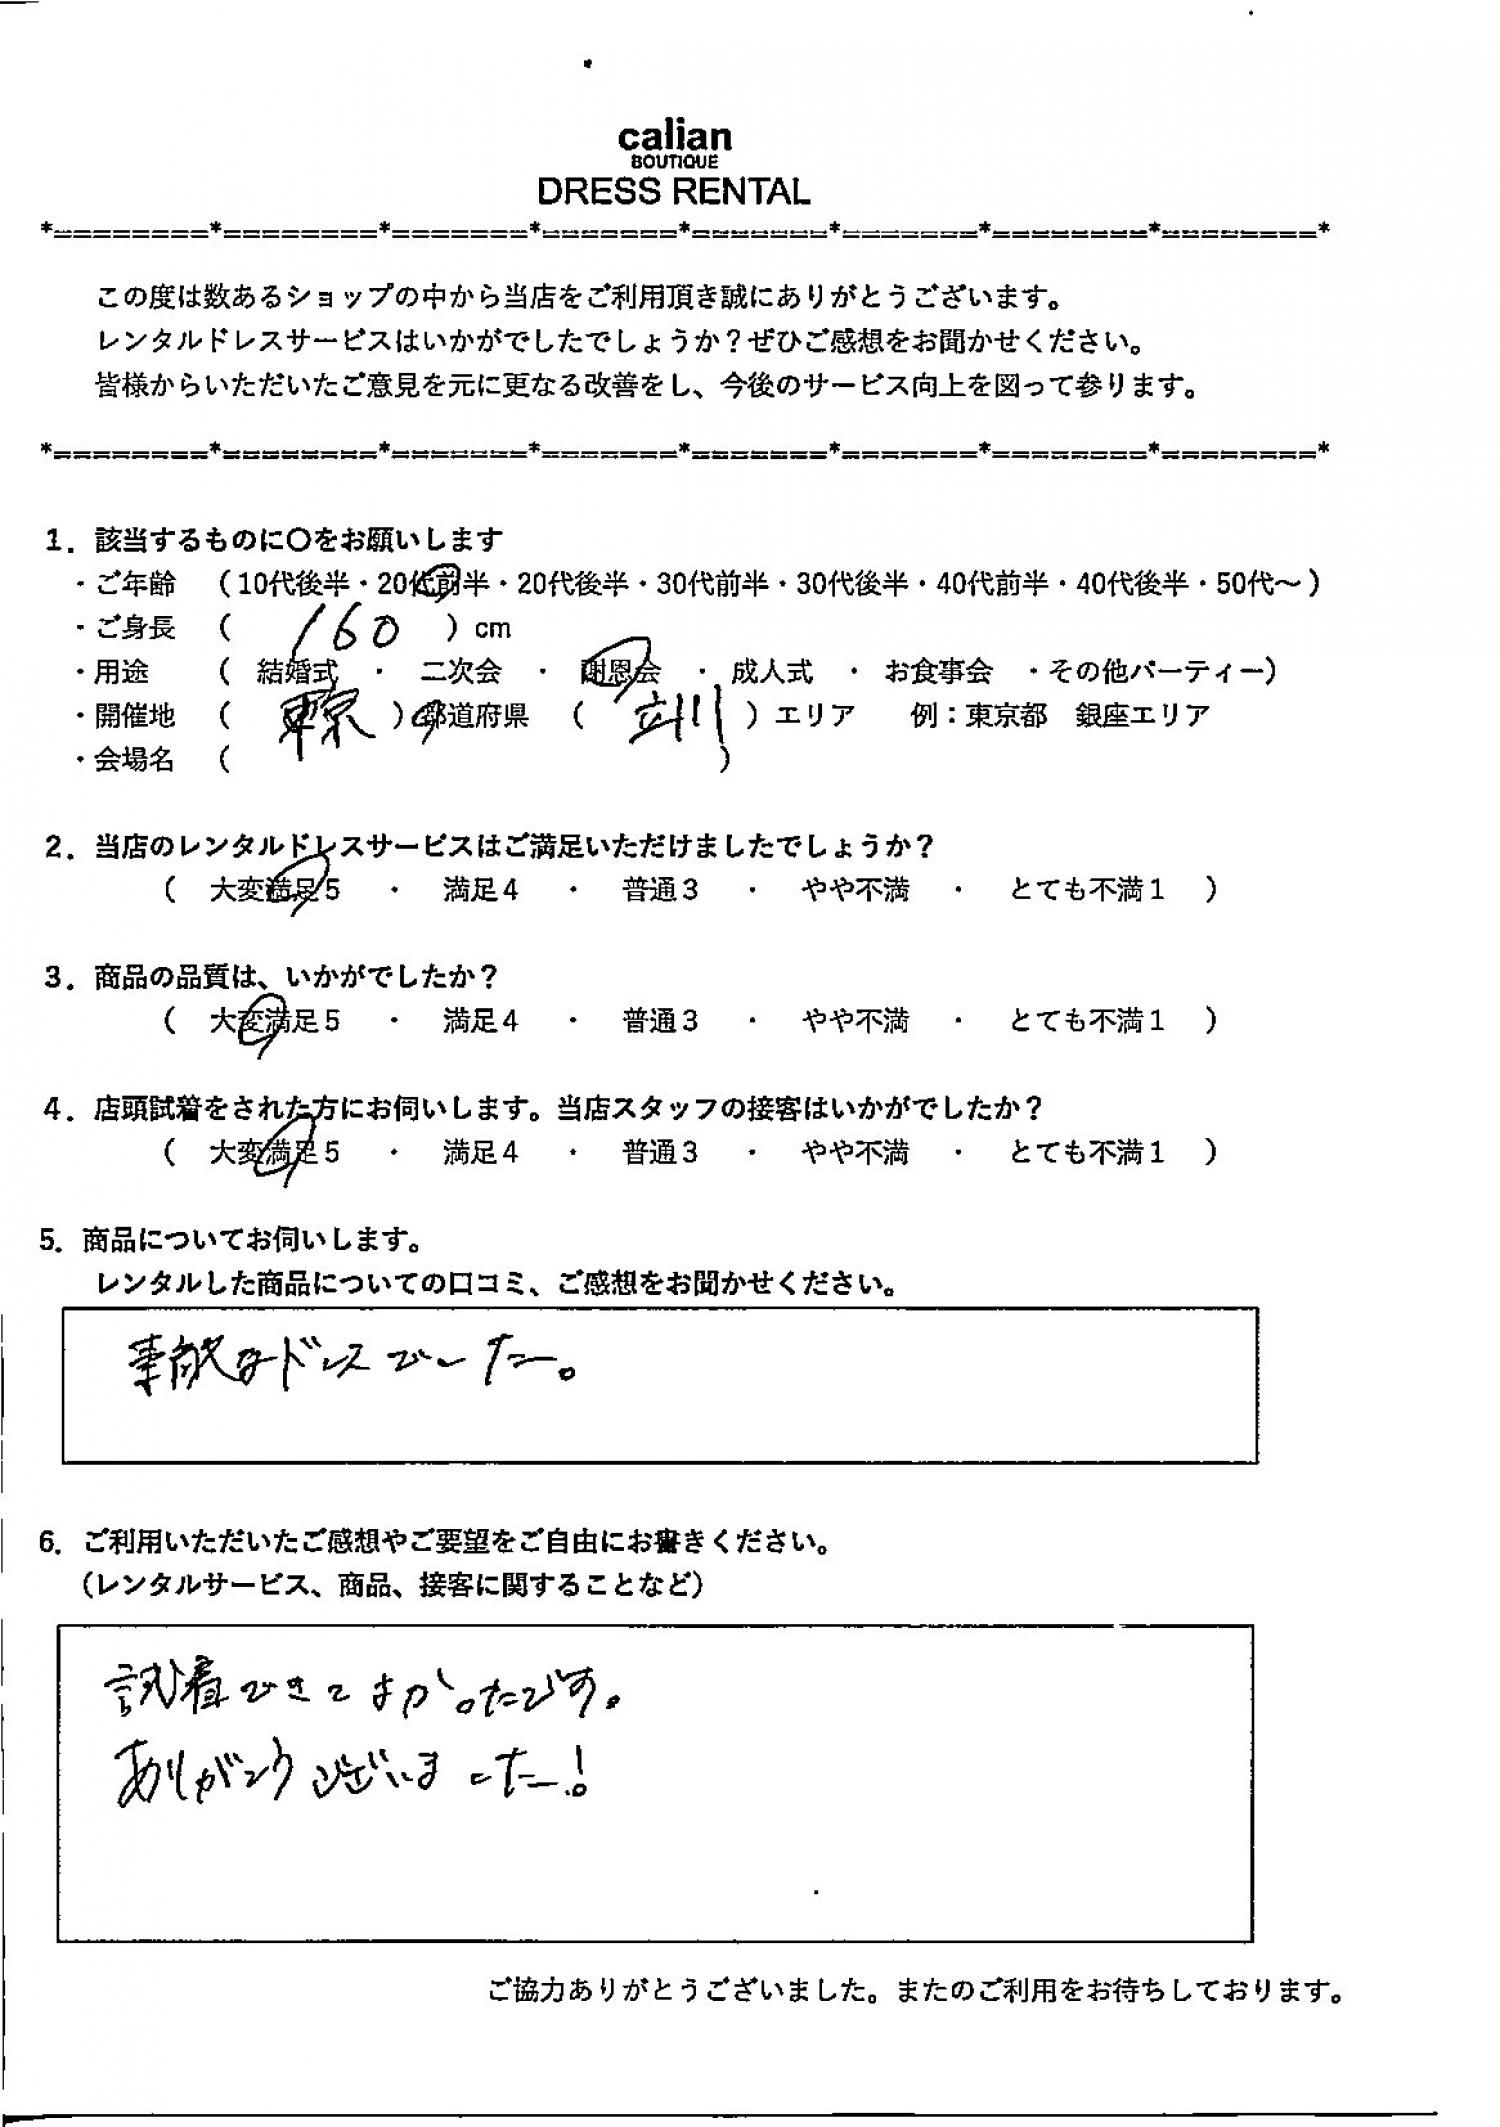 calian
BOUTIQUE
DRESS RENTAL
*========*========*=======*=======*=======*=======*========*========*
この度は数あるショップの中から当店をご利用頂き誠にありがとうございます。
レンタルドレスサービスはいかがでしたでしょうか？ぜひご感想をお聞かせください。
皆様からいただいたご意見を元に更なる改善をし、今後のサービス向上を図って参ります。
*========*========*=======*=======*=======*=======*========*========*
1．該当するものに〇をお願いします
・ご年齢 （10代後半・20代前半・20代後半・30代前半・30代後半・40代前半・40代後半・50代～）
・ご身長 （ 160 ）cm
・用途 （ 結婚式 ・ 二次会 ・ 謝恩会 ・ 成人式 ・ お食事会 ・その他パーティー）
・開催地 （ 東京 ）都道府県 （ 立川 ）エリア 例：東京都 銀座エリア
・会場名 （ ）
2．当店のレンタルドレスサービスはご満足いただけましたでしょうか？
（ 大変満足5 ・ 満足4 ・ 普通3 ・ やや不満 ・ とても不満1 ）
3．商品の品質は、いかがでしたか？
（ 大変満足5 ・ 満足4 ・ 普通3 ・ やや不満 ・ とても不満1 ）
4．店頭試着をされた方にお伺いします。当店スタッフの接客はいかがでしたか？
（ 大変満足5 ・ 満足4 ・ 普通3 ・ やや不満 ・ とても不満1 ）
5．商品についてお伺いします。
レンタルした商品についての口コミ、ご感想をお聞かせください。
素敵なドレスでした。
6．ご利用いただいたご感想やご要望をご自由にお書きください。
（レンタルサービス、商品、接客に関することなど）
試着できてよかったです。
ありがとうございました！
ご協力ありがとうございました。またのご利用をお待ちしております。